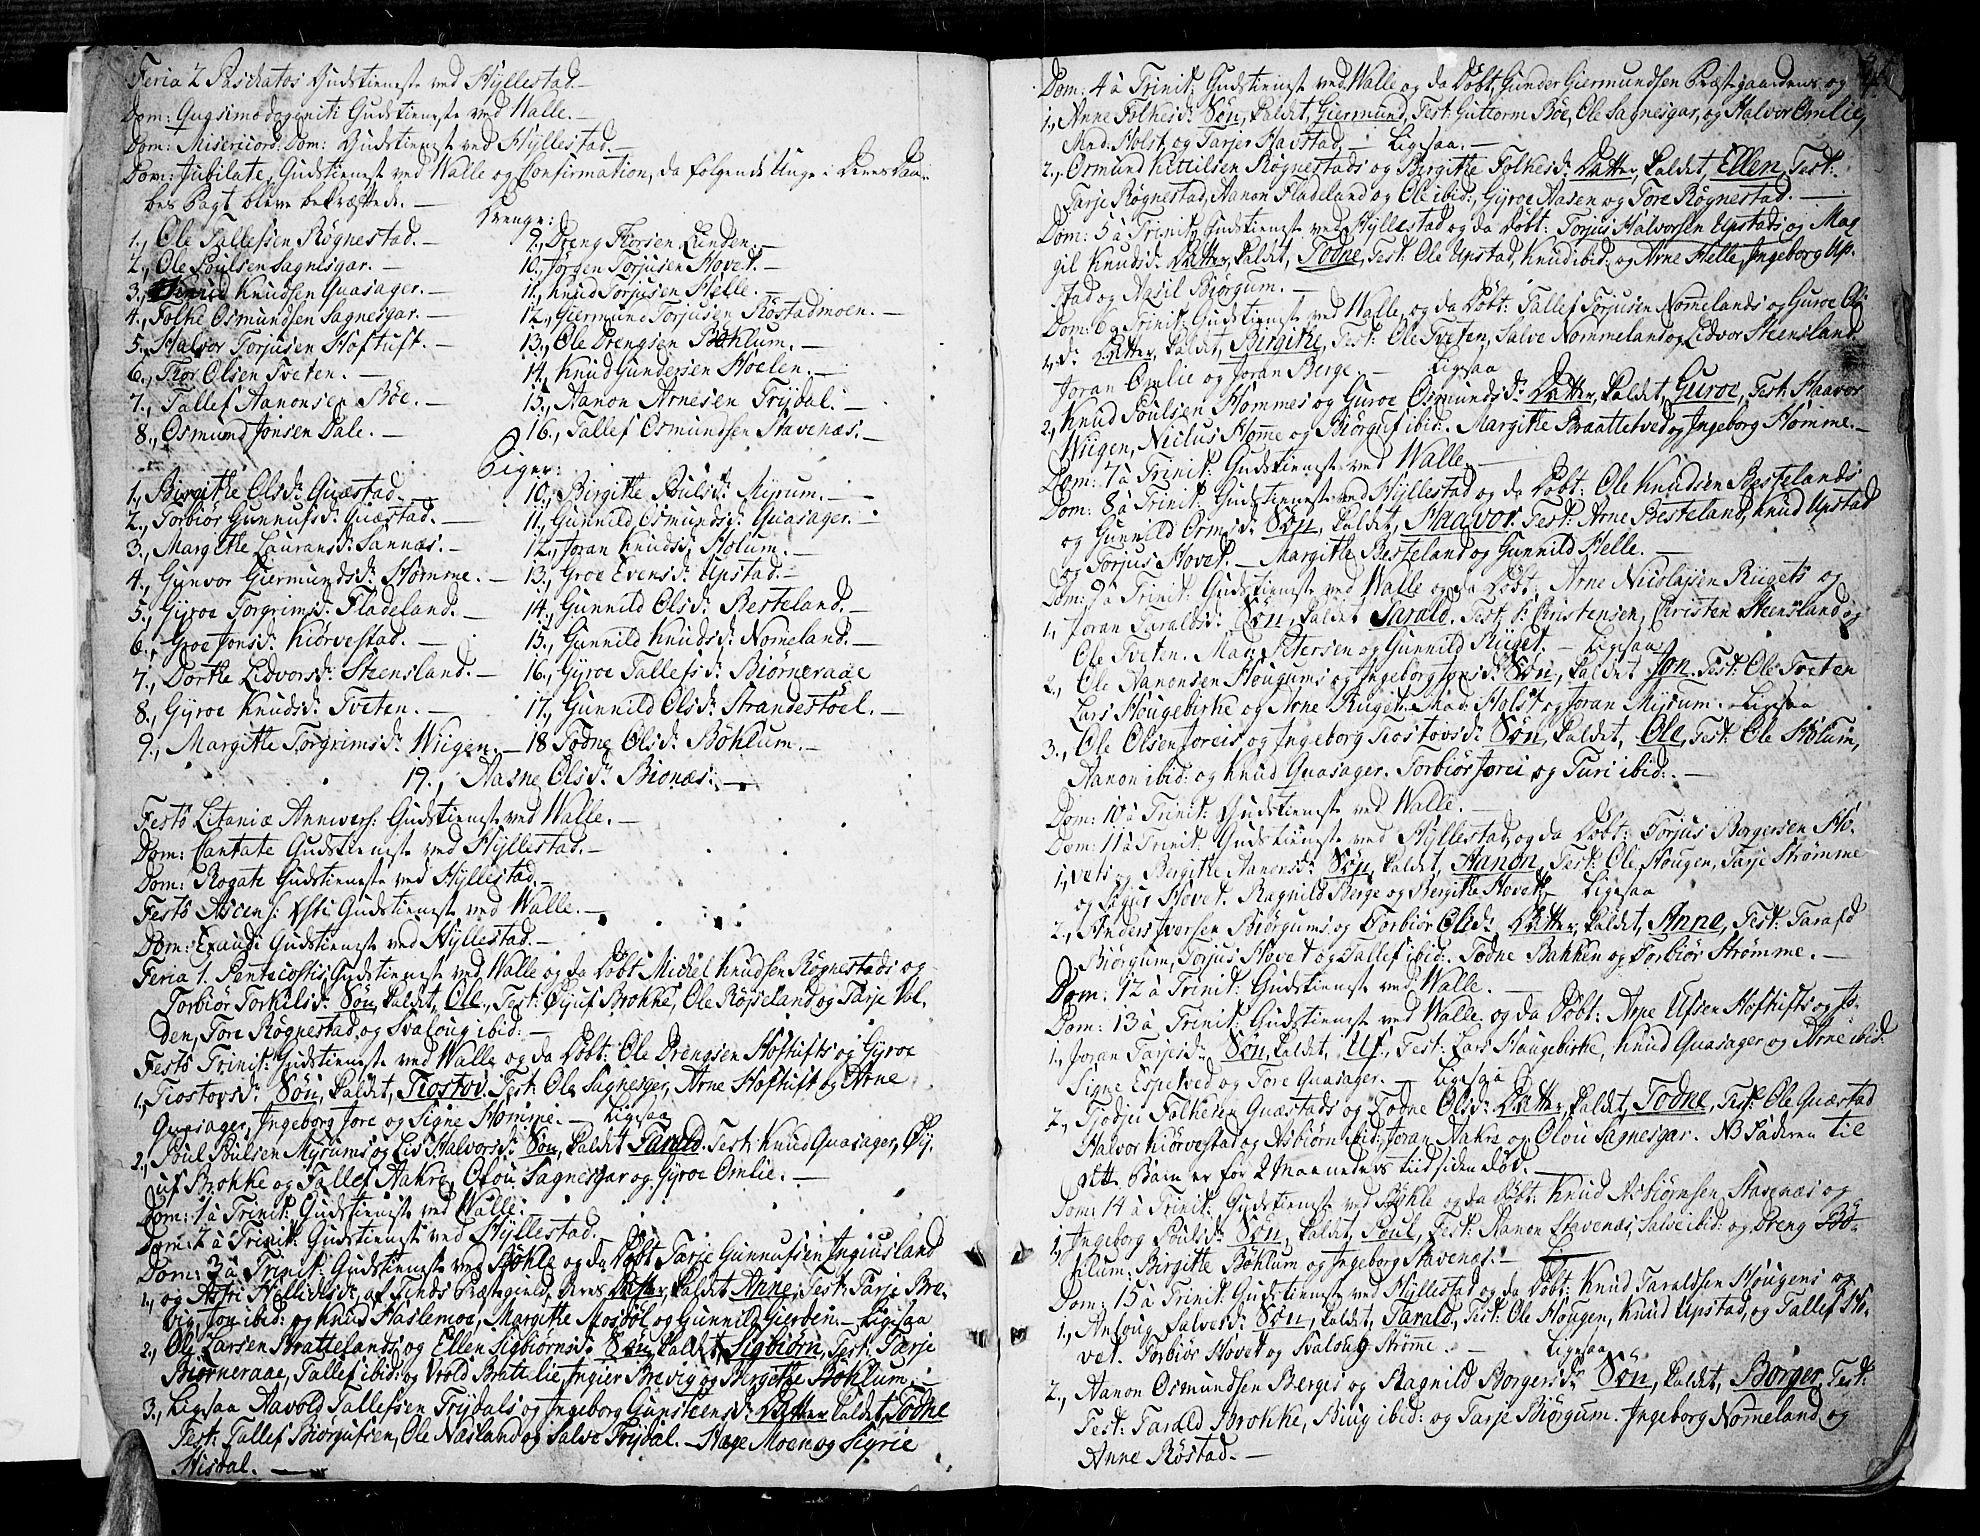 Feria 2 Paschatos Gudstieneste ved Hyllestad.
Dom: Quasimodogeniti Gudstieneste ved Walle.
Dom: Misericord: Dom: Gudstieneste ved Hyllestad.
Dom: Jubilate, Gudstieneste ved Walle og Confirmation, da følgende Unge i deres Daa-
bes Pagt bleve bekræftede.
Drenge:
1., Ole Tallefsen Røgnestad.
2., Ole Poulsen Sagnesgar.
3., Knudsen Quasager.
4., Folke Osmundsen Sagnesgar.
5., Halvor Torjusen Hoftuft.
6., Thor Olsen Tveten.
7., Tallef Aanonsen Bøe.
8., Osmund Jonsen Dale.
9., Dreng Thorsen Lunden.
10., Jørgen Torjusen Hovet.
11., Knud Torjusen Helle.
12., Giermund Torjusen Røstadmoen.
13., Ole Drengsen Bøhlum.
14., Knud Gundersen Hoelen.
15., Aanon Arnesen Trydal.
16., Tallef Osmundsen Stavenæs.
Piger:
1., Birgithe Olsdr: Quæstad.
2., Torbiør Gunnufsdr: Quæstad.
3., Margithe Lauransdr: Sannæs.
4., Gunvor Giermundsdr: Homme.
5., Gyroe Torgrimsdr: Fladeland.
6., Groe Jonsdr: Kiørvestad.
7., Dorthe Lidvorsdr: Steensland.
8., Gyroe Knudsdr: Tveten.
9., Margithe Torgrimsdr: Wiigen.
10., Birgithe Poulsdr: Myrum.
11., Gunnild Osmundsdr: Quasager.
12., Joran Knudsdr: Holum.
13., Groe Evensdr: Upstad.
14., Gunnild Olsdr: Besteland.
15., Gunnild Knudsdr: Nomeland.
16., Gyroe Tallefsdr: Biørneraae
17., Gunnild Olsdr: Strandestøel.
18 Todne Olsdr: Bøhlum.
19., Aasne Olsdr: Bionæs.
Festo Litaniæ Annivers: Gudstieneste ved Walle.
Dom: Cantate Gudstieneste ved Hyllestad.
Dom: Rogate Gudstieneste ved Hyllestad.
Festo Ascens: Xsti Gudstieneste ved Walle.
Dom: Exaudi Gudstieneste ved Hyllestad.
Feria 1. Pentecostis Gudstieneste ved Walle og da døbt Michel Knudsen Røgnestads og
Torbiør Torkilsdr: Søn, kaldet, Ole, Test: Øjuf Brokke, Ole Røjseland og Tarje Val-
den, Tore Røgnestad og Svaloug ibid:
Festo Trinit: Gudstieneste ved Walle og da døbt: Ole Drengsen Hoftufts og Gyroe
1., Tiostovsdr: Søn, kaldet, Tiostov. Test: Ole Sagnesgar, Arne Hoftuft og Arne
Quasager, Ingeborg Jore og Signe Homme. Ligesaa
2., Poul Poulsen Myrums og Liv Halvorsdr: Søn, kaldet Tarald. Test: Knud Quasager, Øj-
uf Brokke og Tallef Aakre, Olou Sagnesgar og Gyroe Omlie.
Dom: 1 à Trinit: Gudstieneste ved Walle.
Dom: 2 à Trinit: Gudstieneste ved Hyllestad.
Dom: 3 à Trinit: Gudstieneste ved Bøhle og da døbt Tarje Gunnufsen Ingiusland
1., og Assri Hellivsdr: af Finds Præstegield, deres Datter, kaldet Anne, Test: Tarje Bre-
vig, Jon ibid: og Knud Haslemoe, Margithe Mosbøl og Gunnild Gierden. Ligesaa
2., Ole Larsen Brattelands og Ellen Sigbiørnsdr: Søn, kaldet, Sigbiørn, Test: Tarje
Biørneraae, Tallef ibid: og Vrold Brattelie, Ingier Brevig og Birgithe Bøhlum.
3., Ligesaa Aavold Tallefsen Trydals og Ingeborg Gunsteensdr: Datter kaldet, Todne
Test: Tallef Biørgufsen, Ole Næsland og Salve Trydal. Hage Moen og Sigrie
Nisdal.
Dom: 4 à Trinit: Gudstieneste ved Walle og da døbt, Gunder Giermundsen Præstegaardens og
1., Anne Folkesdr: Søn, kaldet, Giermund, Test: Guttorm Bøe, Ole Sagnesgar, og Halvor Omlie,
Mad. Holst, og Tarjer Harstad. Ligesaa.
2., Osmund Kittilsen Røgnestads og Birgithe Folkesdr: Datter, kaldet, Ellen, Test:
Tarje Røgnestad, Aanon Fladeland og Ole ibid:, Gyroe Aasen og Tore Røgnestad.
Dom: 5 à Trinit: Gudstieneste ved Hyllestad og da døbt: Torjus Halvorsen Upstads og Mag
gil Knudsdr: Datter, kaldet, Todne, Test: Ole Upstad, Knud ibid: og Arne Helle, Ingeborg Up-
stad og Aasil Biørgum.
Dom: 6 à Trinit: Gudstieneste ved Walle, og da døbt: Tallef Torjusen Nomelands og Guroe Ols-
1, dr: Datter, kaldet, Birgithe, Test: Ole Tveten, Salve Nommeland og Lidvor Steensland.
Joran Omlie og Joran Berge. Ligesaa
2, Knud Poulsen Hommes og Guroe Osmundsdr: Datter, kaldet, Guroe, Test: Haavor
Wiigen, Niclus Homme og Biørguf ibid:. Margithe Braattetved og Ingeborg Homme.
Dom: 7 à Trinit: Gudstieneste ved Walle.
Dom: 8 à Trinit: Gudstieneste ved Hyllestad og da døbt: Ole Knudsen Bestelands
og Gunnild Ormsdr: Søn, kaldet, Haavor. Test: Arne Besteland, Knud Upstad
og Torjus Hovet. Margithe Besteland og Gunnild Helle.
Dom: 9 à Trinit: Gudstieneste ved Walle og da døbt, Arne Nicolajsen Riigets og
1., Joran Taraldsdr: Søn, kaldet Tarald. Test: P: Christensen, Christen Steensland og
Ole Tveten. Mad: Petersen og Gunnild Riiget. Ligesaa
2., Ole Aanonsen Hougums og Ingeborg Jonsdr: Søn, kaldet Jon. Test: Ole Tveten
Lars Hougebirke og Arne Riiget. Mad: Holst og Joran Myrum. Ligesaa
3., Ole Olsen Joreis og Ingeborg Tiostovsdr: Søn, kaldet, Ole, Test: Ole Holum,
Aanon ibid: og Knud Quasager. Torbiør Jorei og Turi ibid:.
Dom: 10 à Trinit: Gudstieneste ved Walle.
Dom: 11 à Trinit: Gudstieneste ved Hyllestad, og da døbt: Torjus Borgersen Ho-
1., vets og Bergithe Aanonsdr: Søn, kaldet, Aanon, Test: Ole Hougen, Tarje Strømme
og Sigur Hovet. Ragnild Berge og Bergithe Hovet. Ligesaa
2., Anders Iversen Biørgums og Torbiør Olsdr: Datter, kaldet, Anne, Test: Tarald
Biørgum, Torjus Hovet og Tallef ibid:. Todne Bakken og Torbiør Strømme.
Dom: 12 à Trinit: Gudstieneste ved Walle.
Dom: 13 à Trinit: Gudstieneste ved Walle og da døbt: Arne Ufsen Hoftufts og
1., Joran Tarjesdr: Søn, kaldet, Uf, Test: Lars Haugebirke, Knud Quasager og Arne ibid:
Signe Espetved og Tore Quasager. Ligesaa
2., Tjødju Folkesen Quæstads og Todne Olsdr: Datter, kaldet, Todne, Test: Ole Quæstad
Halvor Kiørvestad og Asbiørn ibid: Joran Aakre og Olou Sagnesgar. NB Faderen til
dette Barn er for 2 Maaneders tiid siden død.
Dom: 14 à Trinit: Gudstieneste ved Bøhle og da døbt: Knud Asbiørnsen Stavenæs og
1, Ingeborg Poulsdr: Søn, kaldet, Poul, Test: Aanon Stavenæs, Salve ibid: og Dreng Bø-
hlum: Birgithe Bøhlum og Ingeborg Stavenæs.
Dom: 15 à Trinit: Gudstieneste ved Hyllestad og da døbt: Knud Taraldsen Hougens og
1., Anloug Salvesdr: Søn, kaldet, Tarald, Test: Ole Hougen, Knud Upstad, og Tallef Ho-
vet. Torbiør Hovet og Svaloug Strømme. Ligesaa
2., Aanon Osmundsen Berges og Ragnild Borgersdr: Søn, kaldet, Borger, Test:
Test: Tarald Brokke, Biug ibid: og Tarje Biørgum. Ingeborg Nomeland og
Anne Røstad.